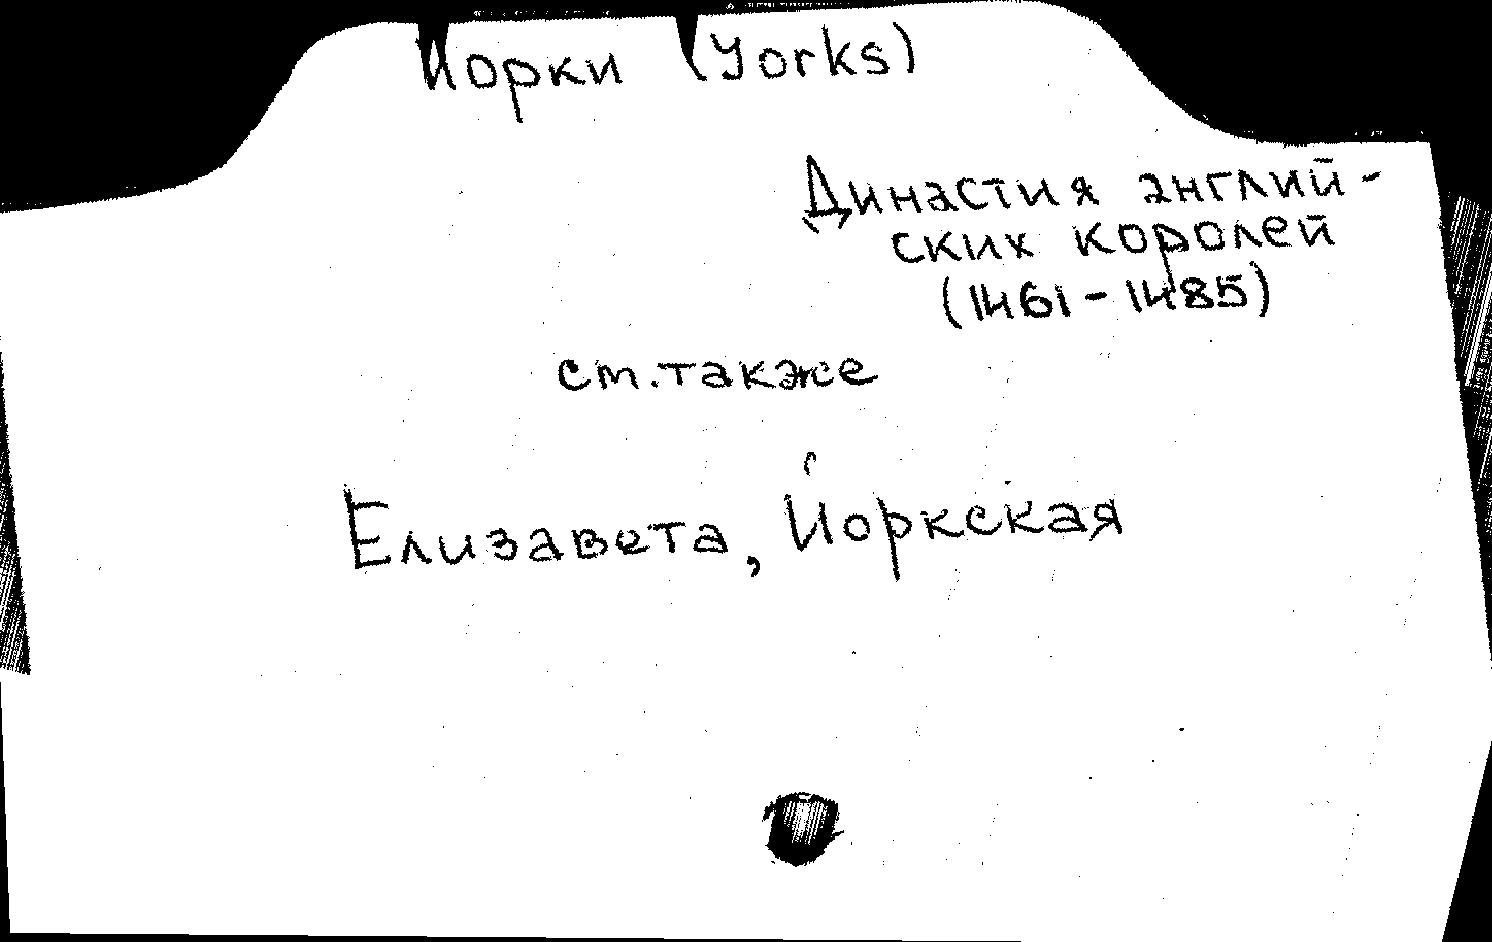 Йорки (Yorks)
Династия англий-
ских королей
(1461-1485)
см. также
Елизавета, Йоркская